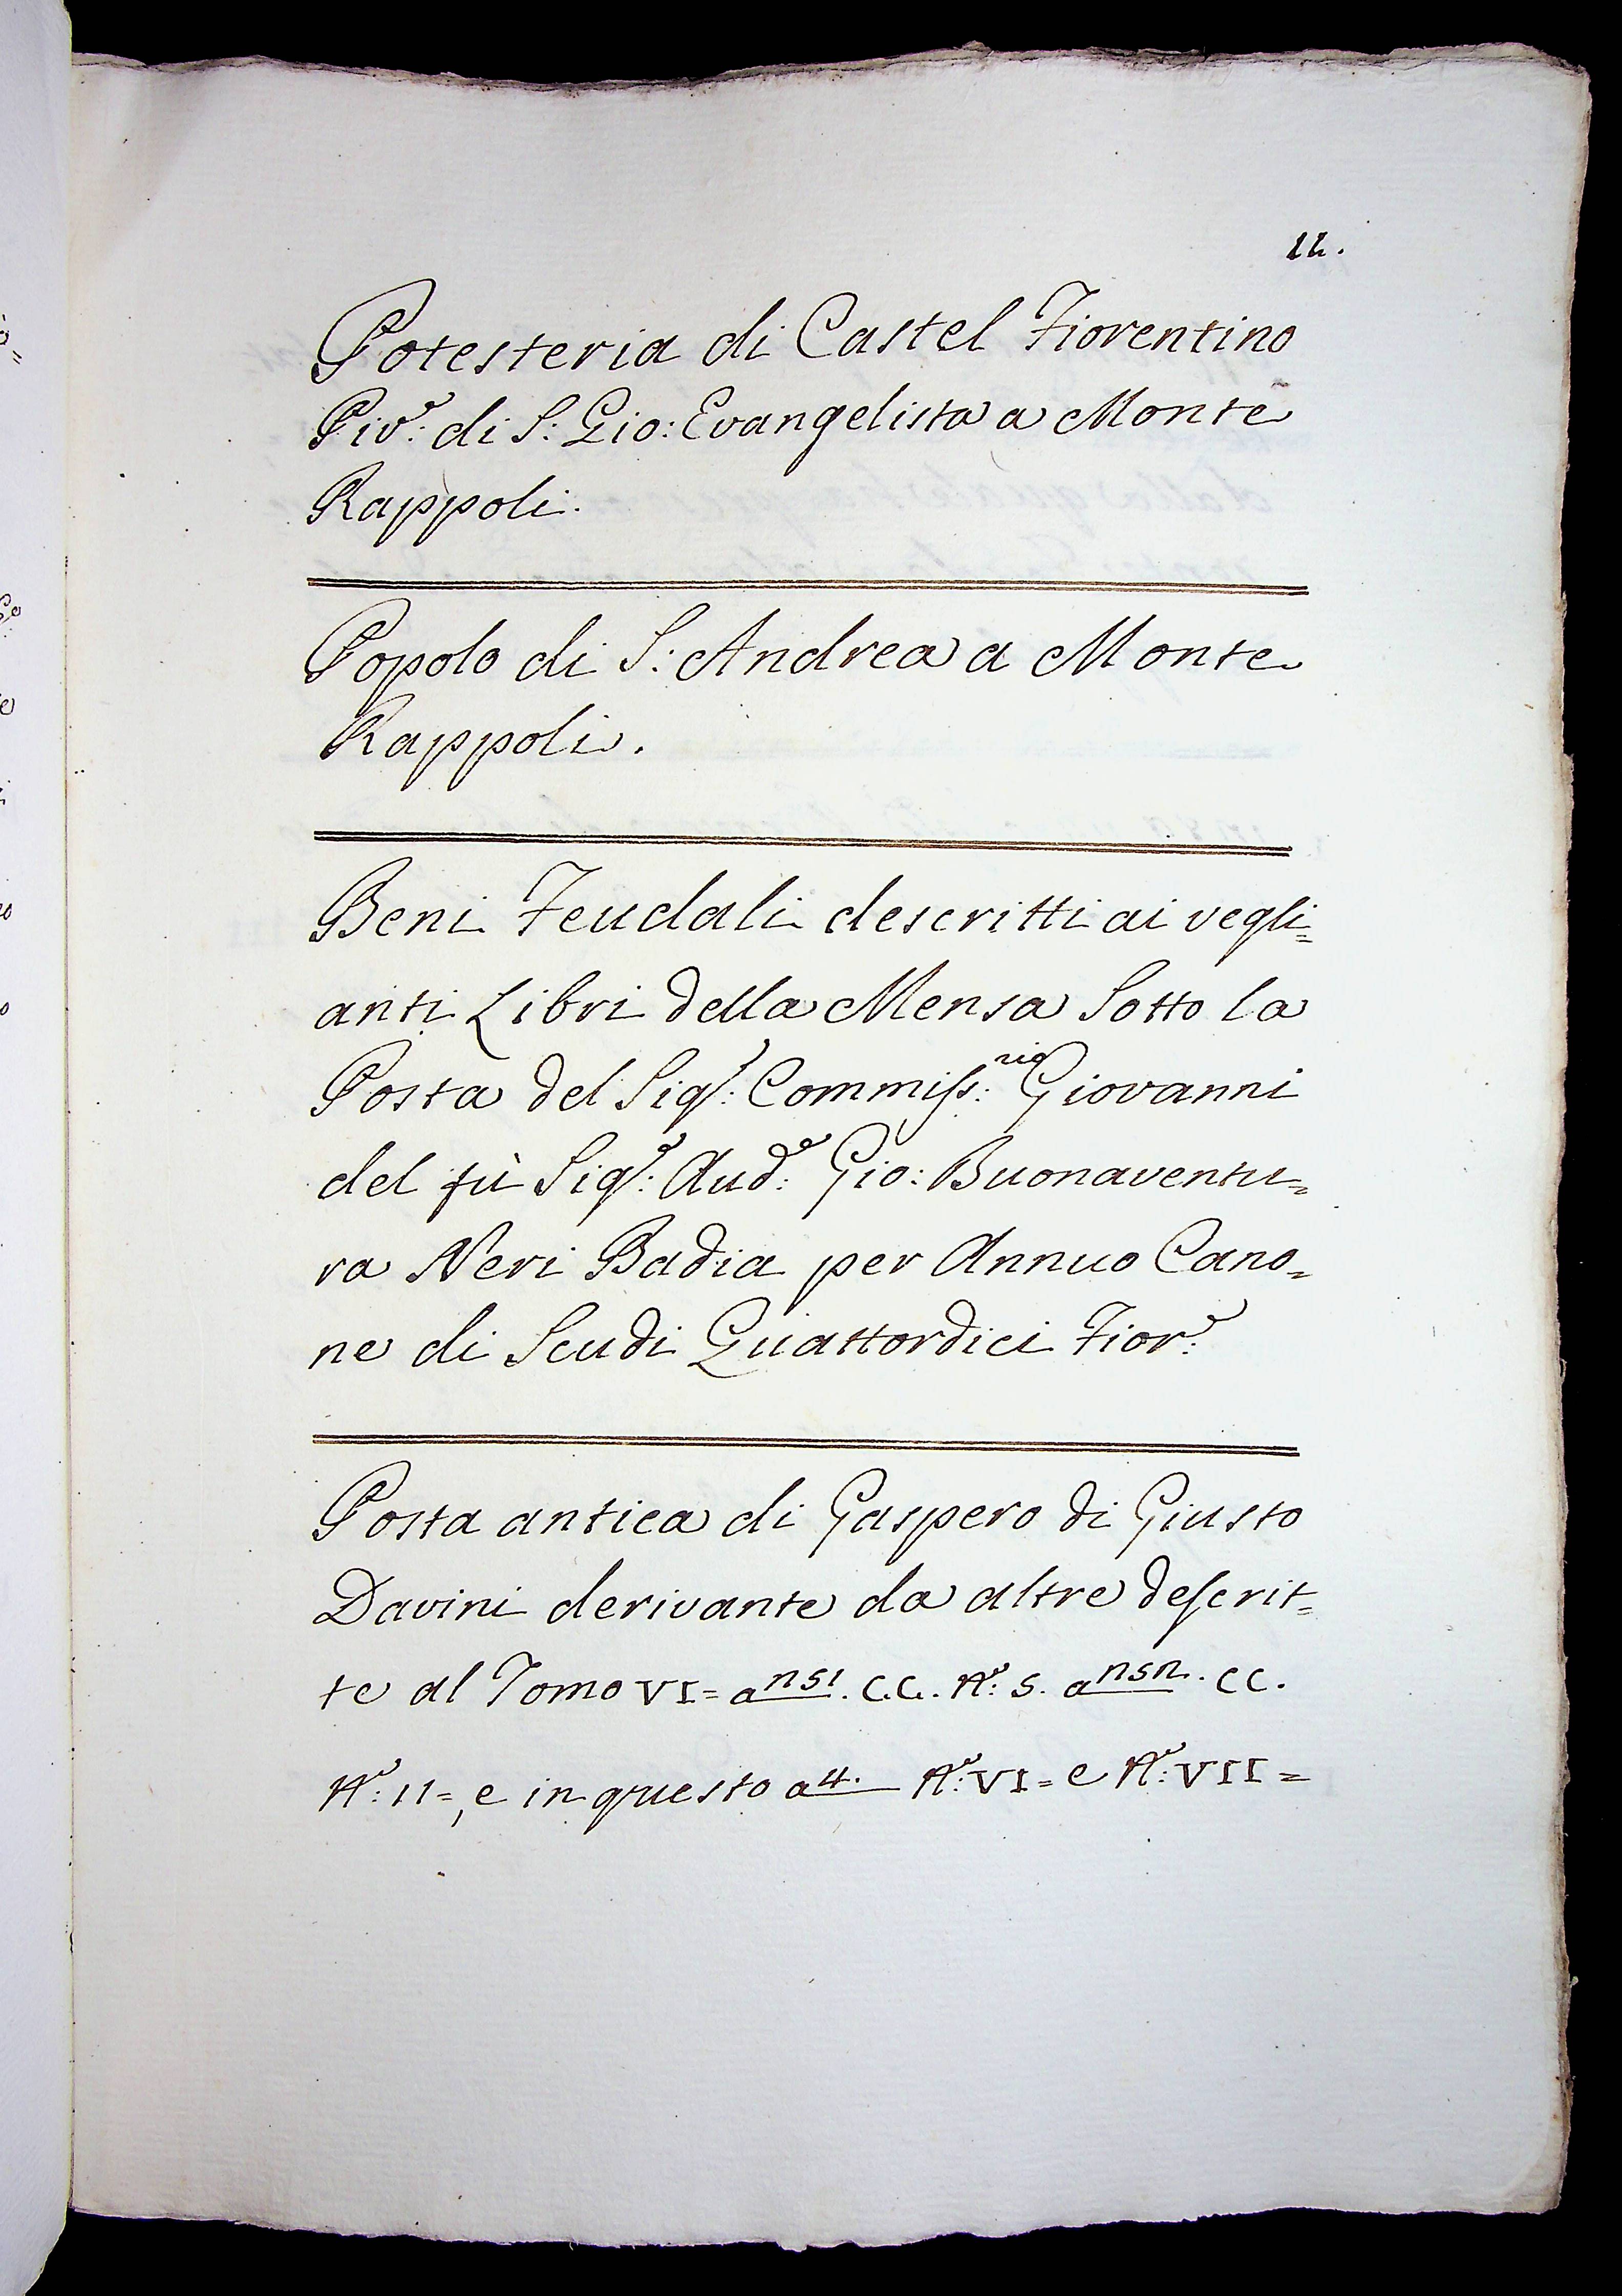 12.
Potesteria di Castel Fiorentino
Piv.e di S: Gio: Evangelista a Monte
Rappoli.
Popolo di S: Andrea a Monte
Rappoli.
Beni Feudali descritti ai vegli=
anti Libri della Mensa Sotto la
Posta del Sig.r: Commiss:rio Giovanni
del fù Sig.e: Aud.e: Gio: Buonaventu=
ra Neri Badia per Annuo Cano=
ne di Scudi Quattordici Fior.e:
Posta antica di Gaspero di Giusto
Davini derivante da altre descrit=
te al Tomo VI= a C.C. N.o: 5. a CC.
N.o: 11=, e in questo a 4. N.o: VI= e N.o: VII=